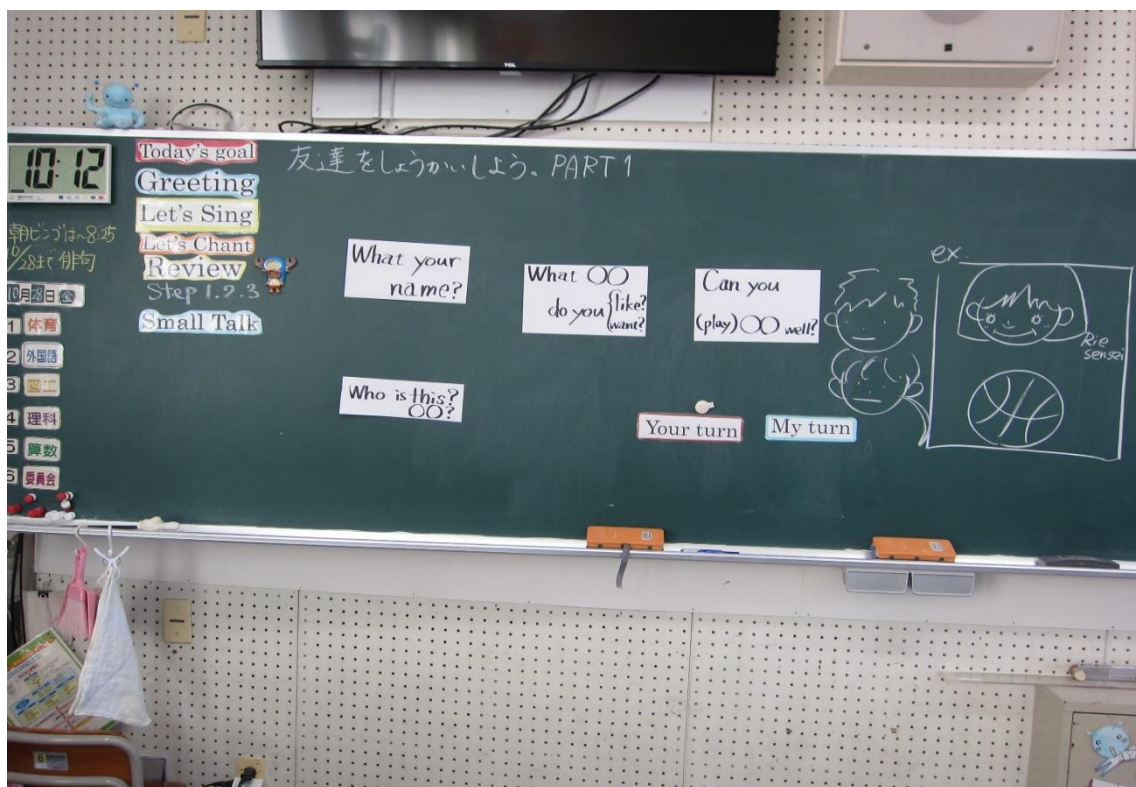 TCL
10:12
朝ビンゴは~8:25
10/28まで俳句
10月28日 金
1 体育
2 外国語
3 図工
4 理科
5 算数
6 委員会
Today's goal
Greeting
Let's Sing
Let's Chant
Review
Step 1.2.3
Small Talk
友達をしょうかいしよう。PART 1
What your
name?
Who is this?
○○?
What ○○
do you {like?
want?
Can you
(play) ○○ well?
Your turn
My turn
ex.
Rie
sensei